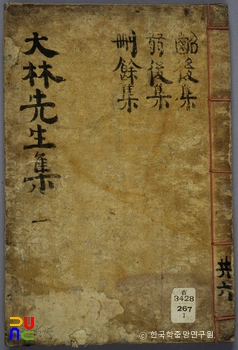 後集
後集
刪餘集
大林先生集 一
共六
3428
267
1
© 한국학중앙연구원